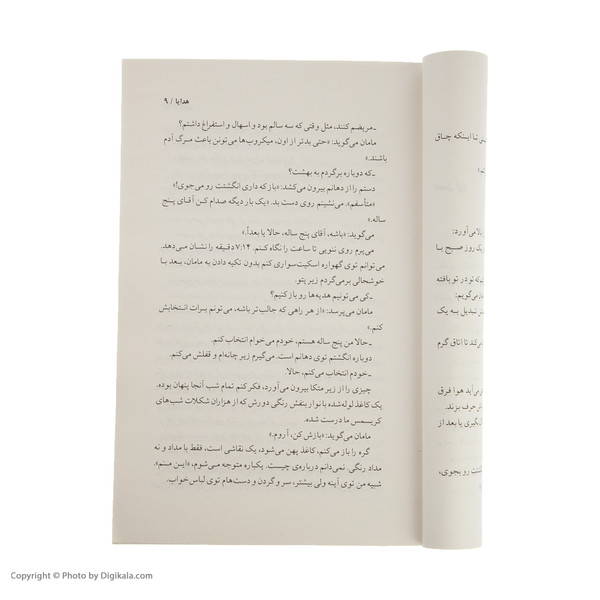 هدایا / ۹
ـ مریضم کنند، مثل وقتی که سه سالم بود و اسهال و استفراغ داشتم؟
مامان می‌گوید: «حتی بدتر از اون، میکروب‌ها می‌تونن باعث مرگ آدم
باشند.»
ـ که دوباره برگردم به بهشت؟
دستم را از دهانم بیرون می‌کشد: «باز که داری انگشتت رو می‌جوی!»
«متأسفم». می‌نشینم روی دست بد. «یک بار دیگه صدام کن آقای پنج
ساله.»
می‌گوید: «باشه، آقای پنج ساله، حالا یا بعداً.»
می‌پرم روی ننویی تا ساعت را نگاه کنم. ۷:۱۴ دقیقه را نشان می‌دهد.
می‌توانم توی گهواره اسکیت‌سواری کنم بدون تکیه دادن به مامان، بعد با
خوشحالی برمی‌گردم زیر پتو.
ـ کی می‌تونیم هدیه‌ها رو باز کنیم؟
مامان می‌پرسد: «از هر راهی که جالب‌تر باشه، می‌تونم برات انتخابش
کنم.»
ـ حالا من پنج ساله هستم، خودم می‌خوام انتخاب کنم.
دوباره انگشتم توی دهانم است. می‌گیرم زیر چانه‌ام و قفلش می‌کنم.
ـ خودم انتخاب می‌کنم، حالا.
چیزی را از زیر متکا بیرون می‌آورد، فکر کنم تمام شب آنجا پنهان بوده.
یک کاغذ لوله‌شده با نوار بنفش رنگی دورش که از هزاران شکلات شب‌های
کریسمس ما درست شده.
مامان می‌گوید: «بازش کن، آروم.»
گره را باز می‌کنم، کاغذ پهن می‌شود، یک نقاشی است، فقط با مداد و نه
مداد رنگی. نمی‌دانم درباره‌ی چیست. یکباره متوجه می‌شوم، «این منم».
شبیه من توی آینه ولی بیشتر، سر و گردن و دست‌هام توی لباس‌خواب.
تا اینکه چاق
بالا می‌آورد:
یک روز صبح با
که تو در تو بافته
می‌گویم:
تبدیل به یک
تا اتاق گرم
می‌آید هوا فرق
حرف بزند.
یا بعد از
انگشتت رو بجوی،
Copyright © Photo by Digikala.com